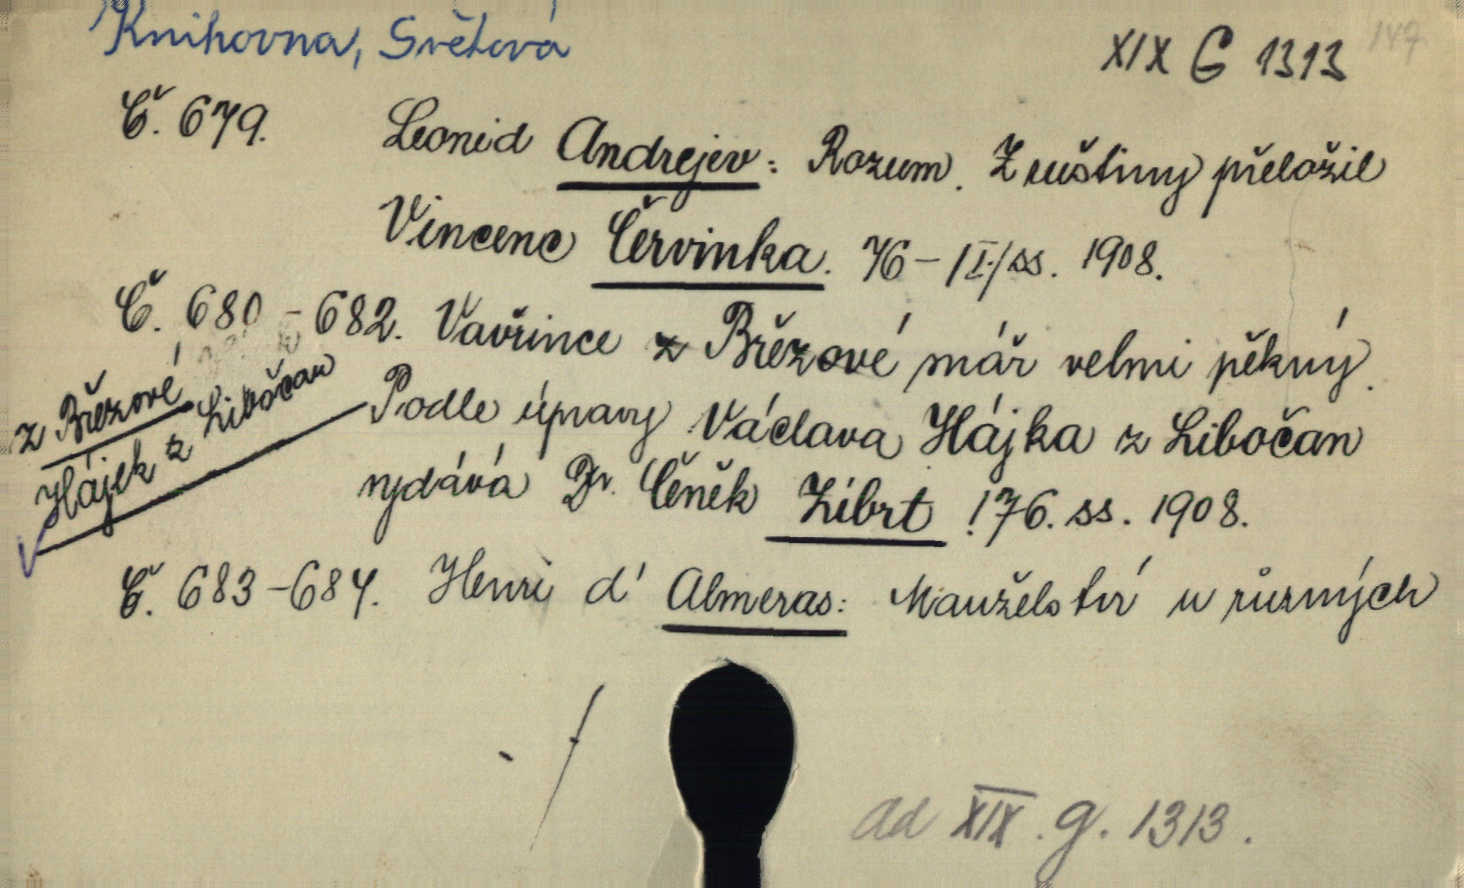 Knihovna, Světová
XIX G 1313
147
Č. 679. Leonid Andrejev: Rozum. Z ruštiny přeložil
Vincenc Červinka. 76 – /I./ ss. 1908.
Č. 680 – 682. Vavřince z Březové snář velmi pěkný.
z Březové
Hájek z Libočan
Podle úpravy Václava Hájka z Libočan
vydává Dr. Čeněk Zíbrt 176. ss. 1908.
Č. 683 – 684. Henri d' Almeras: Manželství u různých
ad XIX. g. 1313.